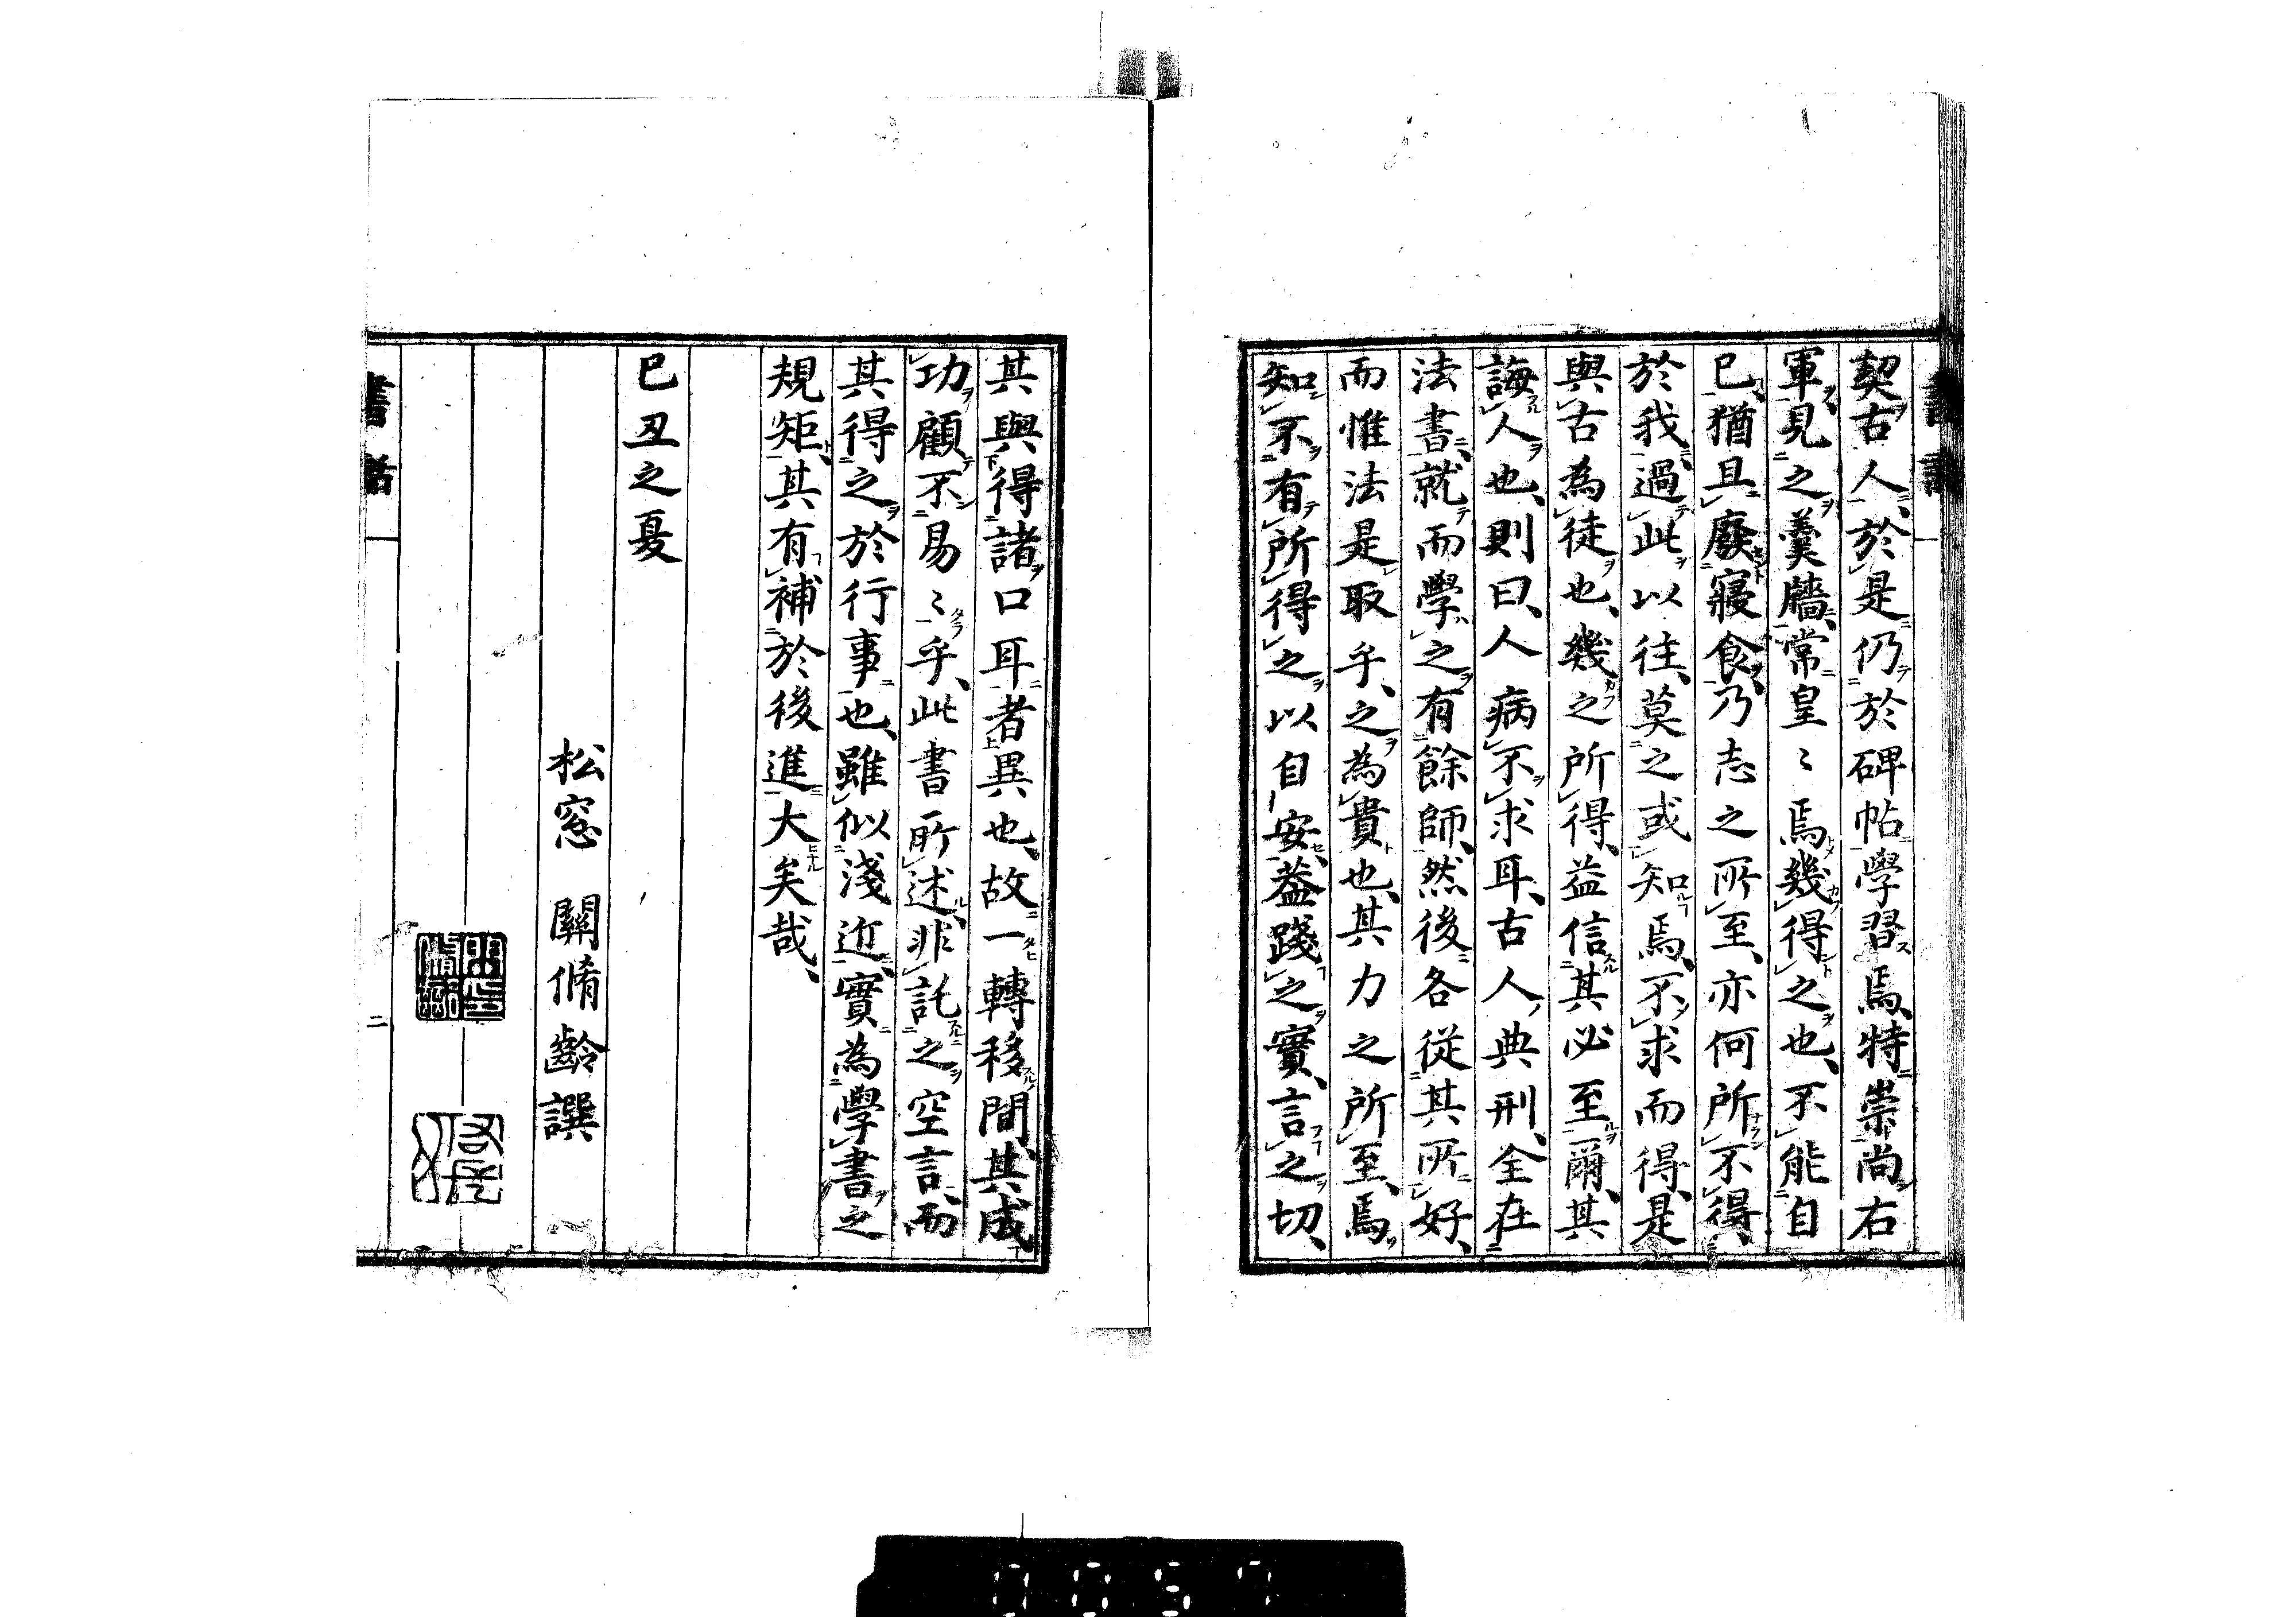 契古人、於是仍於碑帖學習焉、特崇尚右
軍、見之羹牆、常皇〻焉幾得之也、不能自
已、猶且廢寢食、乃志之所至、亦何所不得、
於我、過此以往、莫之或知焉、不求而得、是
與古為徒也、幾之所得、益信其必至爾、其
誨人也、則曰、人病不求耳、古人典刑、全在
法書、就而學之、有餘師、然後各從其所好、
而惟法是取乎、之為貴也、其力之所至、焉
知不有所得、得之以自安、葢踐之實、言之切、
其與得諸口耳者異也、故一轉移間、其成
功顧不易〻乎、此書所述、非託之空言、而
其得之於行事也、雖似淺近、實為學書之
規矩、其有補於後進大矣哉、
己丑之夏
松窓 關脩齡譔
書話
二